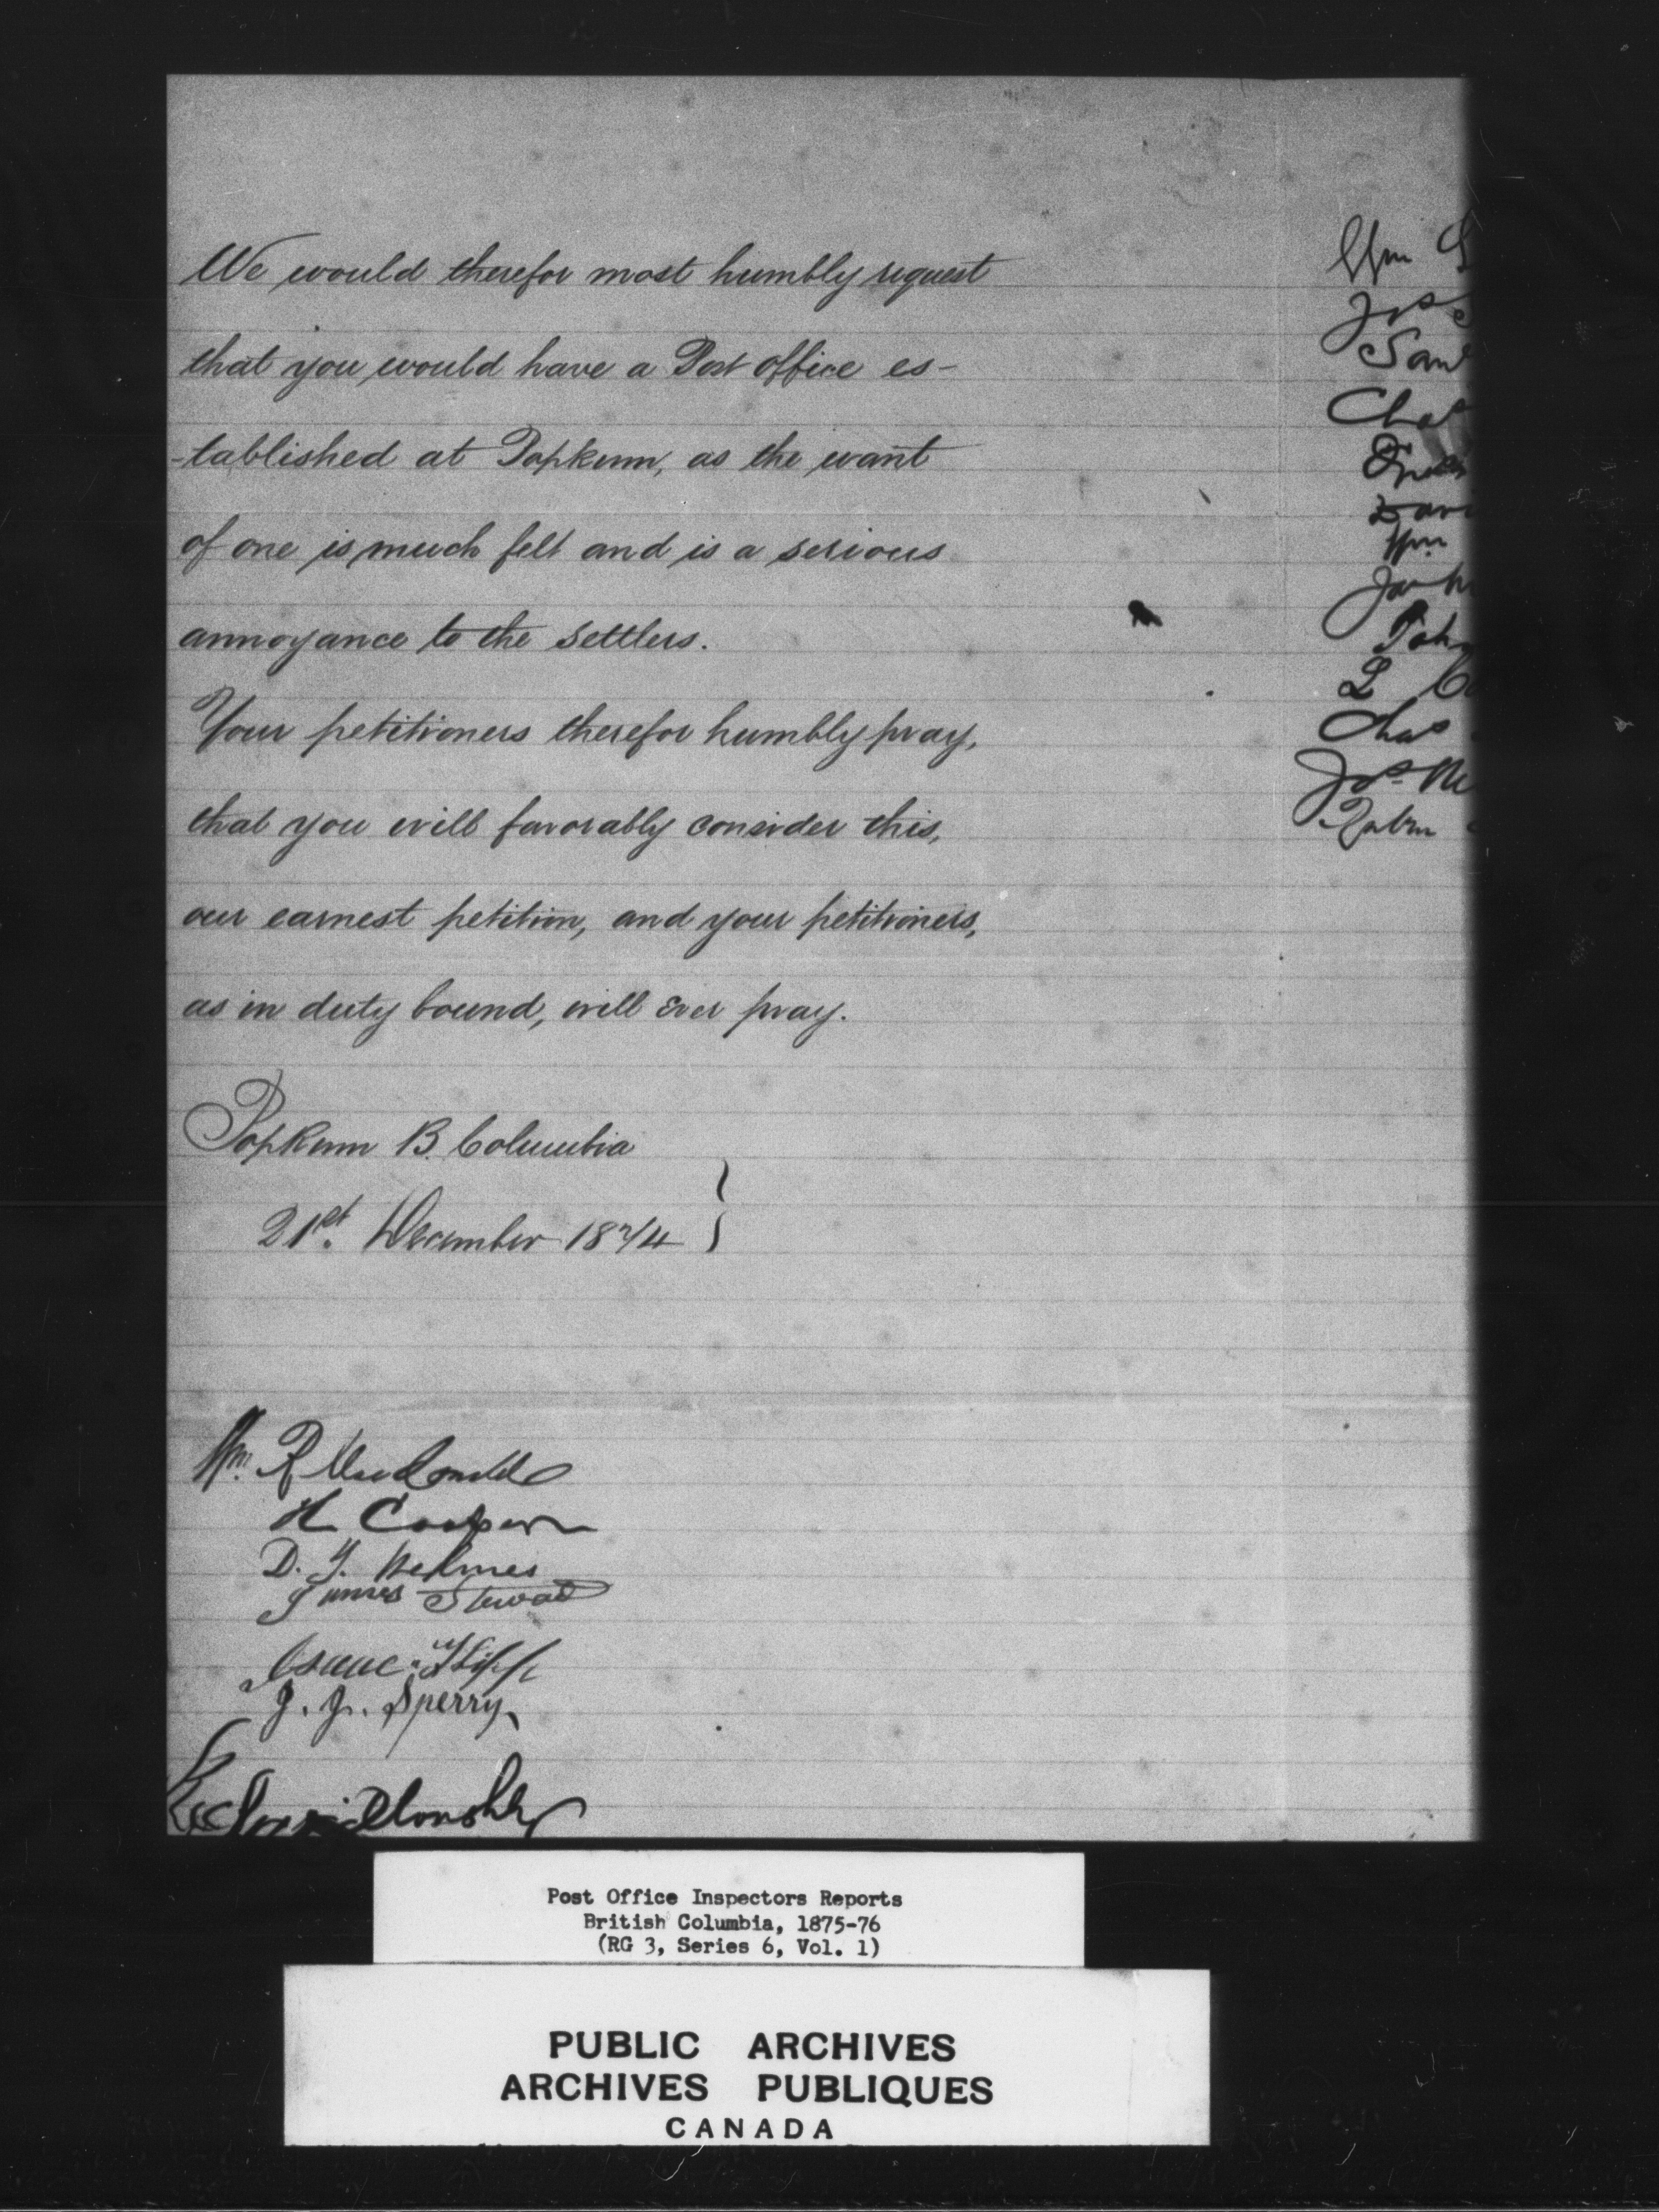 We would therefor most humbly request
that you would have a Post office es-
-tablished at Popkum, as the want
of one is much felt and is a serious
annoyance to the settlers.
Your petitioners therefor humbly pray,
that you will favorably consider this,
our earnest petition, and your petitioners,
as in duty bound, will ever pray.
Popkum B. Columbia
21st. December 1874
Wm. R MacDonald
H Cooper
D. Y. Helmes
James Stewart
Isaac
J. J. Sperry
Wm
Jos
Saml
Chas
Wm
John
L
Chas
Jos Mc
Post Office Inspectors Reports
British Columbia, 1875-76
(RG 3, Series 6, Vol. 1)
PUBLIC ARCHIVES
ARCHIVES PUBLIQUES
CANADA